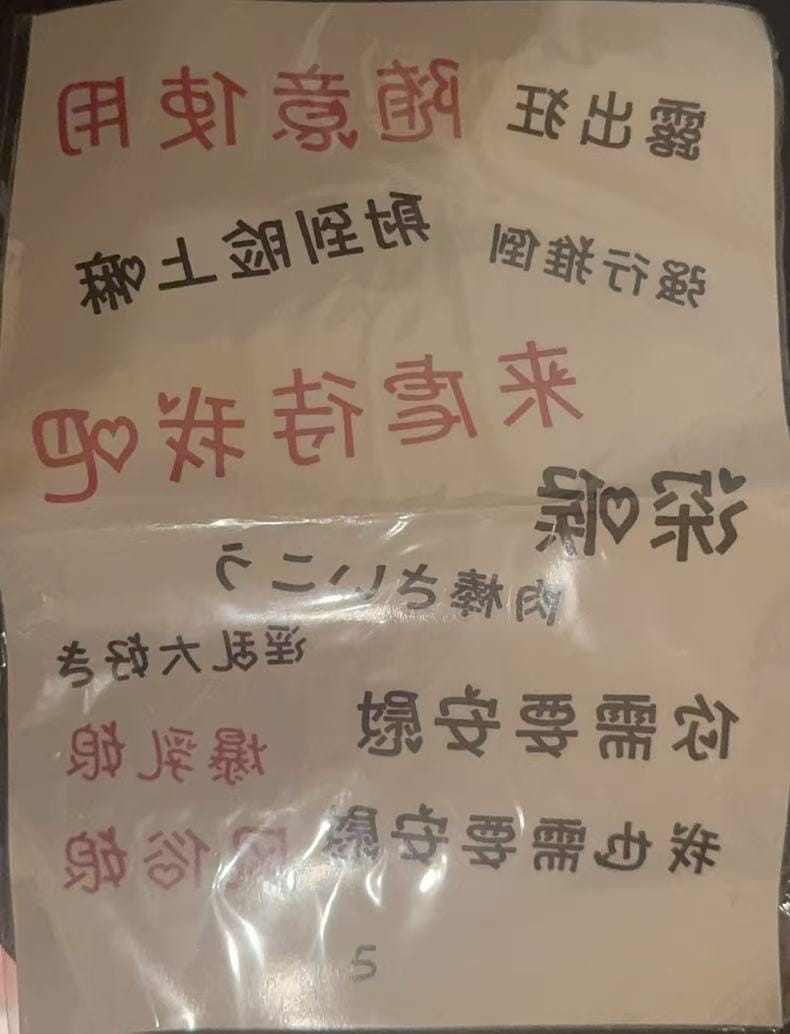 露出狂
随意使用
强行推倒
射到脸上嘛
来虐待我吧
深喉
肉棒さいこう
淫乱大好き
你需要安慰
爆乳娘
我也需要安慰
风俗娘
5